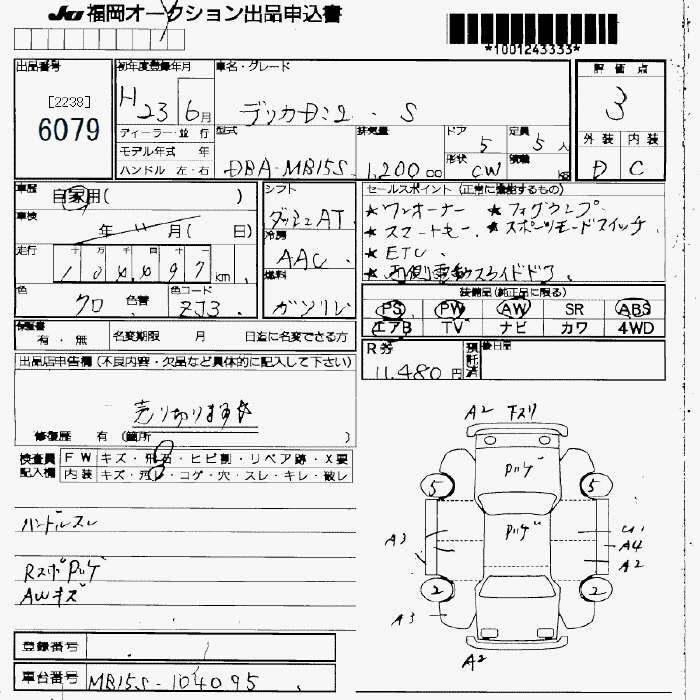 JU 福岡オークション出品申込書
*1001243333*
出品番号
[2238]
6079
初年度登録年月
H23 6月
ディーラー・並行
モデル年式 年
ハンドル 左・右
車名・グレード
デリカD:2 S
型式
DBA-MB15S
排気量
1,200 cc
ドア 5
形状 CW
定員 5 人
積載 kg
評価点
3
外装 内装
D C
車歴 自家用( )
車検 年 月( 日)
走行
十万 千 百 十 一
104497 km
色 クロ 色替 色コード ZJ3
シフト
ダッシュAT
冷房
AAC
燃料
ガソリン
セールスポイント (正常に機能するもの)
★ワンオーナー ★フォグランプ
★スマートキー ★スポーツモードスイッチ
★ETC
★両側電動スライドドア
装備品(純正品に限る)
PS PW AW SR ABS
エアB TV ナビ カワ 4WD
保証書
有・無
名変期限 月 日迄に名変できる方
R券
11,480円
預託済
後日届
出品店申告欄 (不良内容・欠品など具体的に記入して下さい)
売りきります☆
修復歴 有 (箇所 )
検査員記入欄
FW キズ・飛石・ヒビ割・リペア跡・X要
内装 キズ・汚レ・コゲ・穴・スレ・キレ・破レ
ハンドルスレ
RスポPハゲ
AWキズ
A2 下スリ
Pハゲ
5 5
Pハゲ
A3
U1
A4
A2
2 2
A3
A2
登録番号
車台番号 MB15S-104095